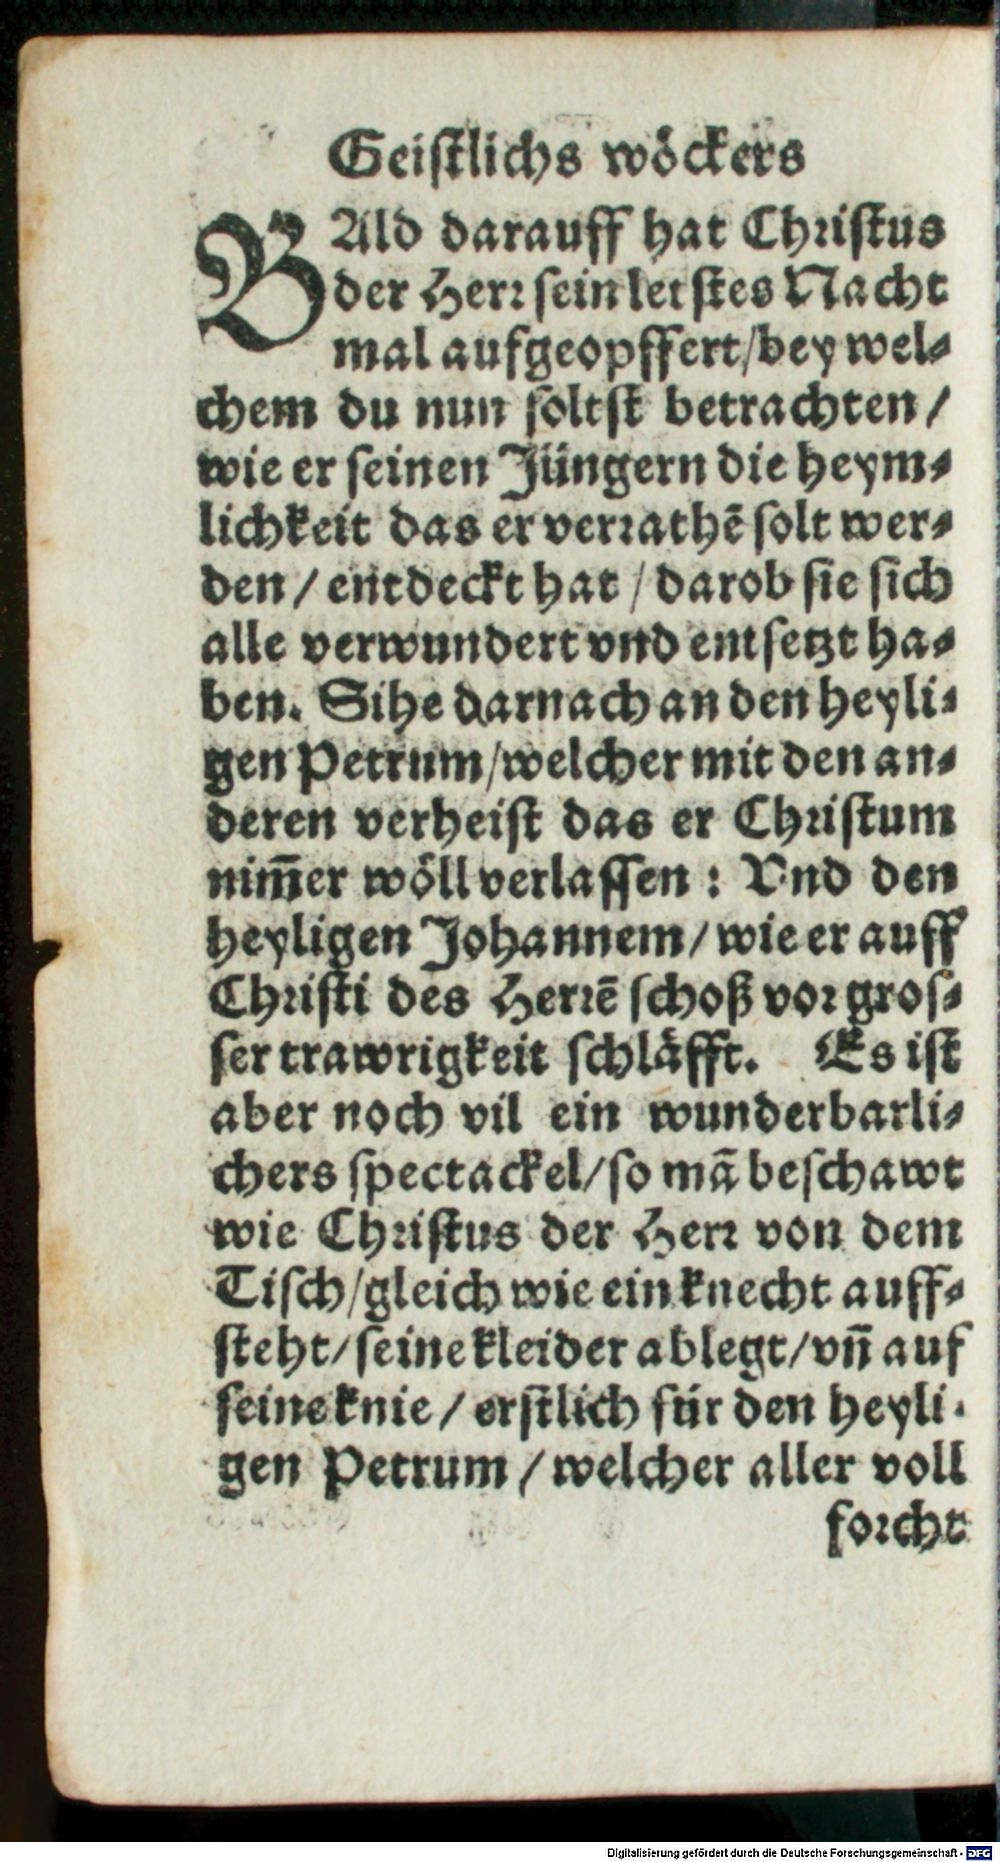 Geistlichs wöckers
BAld darauff hat Christus
der Herr sein letstes Nacht
mal aufgeopffert/bey wel⸗
chem du nun soltst betrachten/
wie er seinen Jüngern die heym⸗
lichkeit das er verrathē solt wer⸗
den/entdeckt hat/darob sie sich
alle verwundert vnd entsetzt ha⸗
ben. Sihe darnach an den heyli⸗
gen Petrum/welcher mit den an⸗
deren verheist das er Christum
nim̄er wöll verlassen: Vnd den
heyligen Johannem/wie er auff
Christi des Herrē schoß vor gros⸗
ser trawrigkeit schläfft. Es ist
aber noch vil ein wunderbarli⸗
chers spectackel/so mā beschawt
wie Christus der Herr von dem
Tisch/gleich wie ein knecht auff⸗
steht/seine kleider ablegt/vn̄ auf
seine knie/erstlich für den heyli⸗
gen Petrum/welcher aller voll
forcht
Digitalisierung gefördert durch die Deutsche Forschungsgemeinschaft - DFG